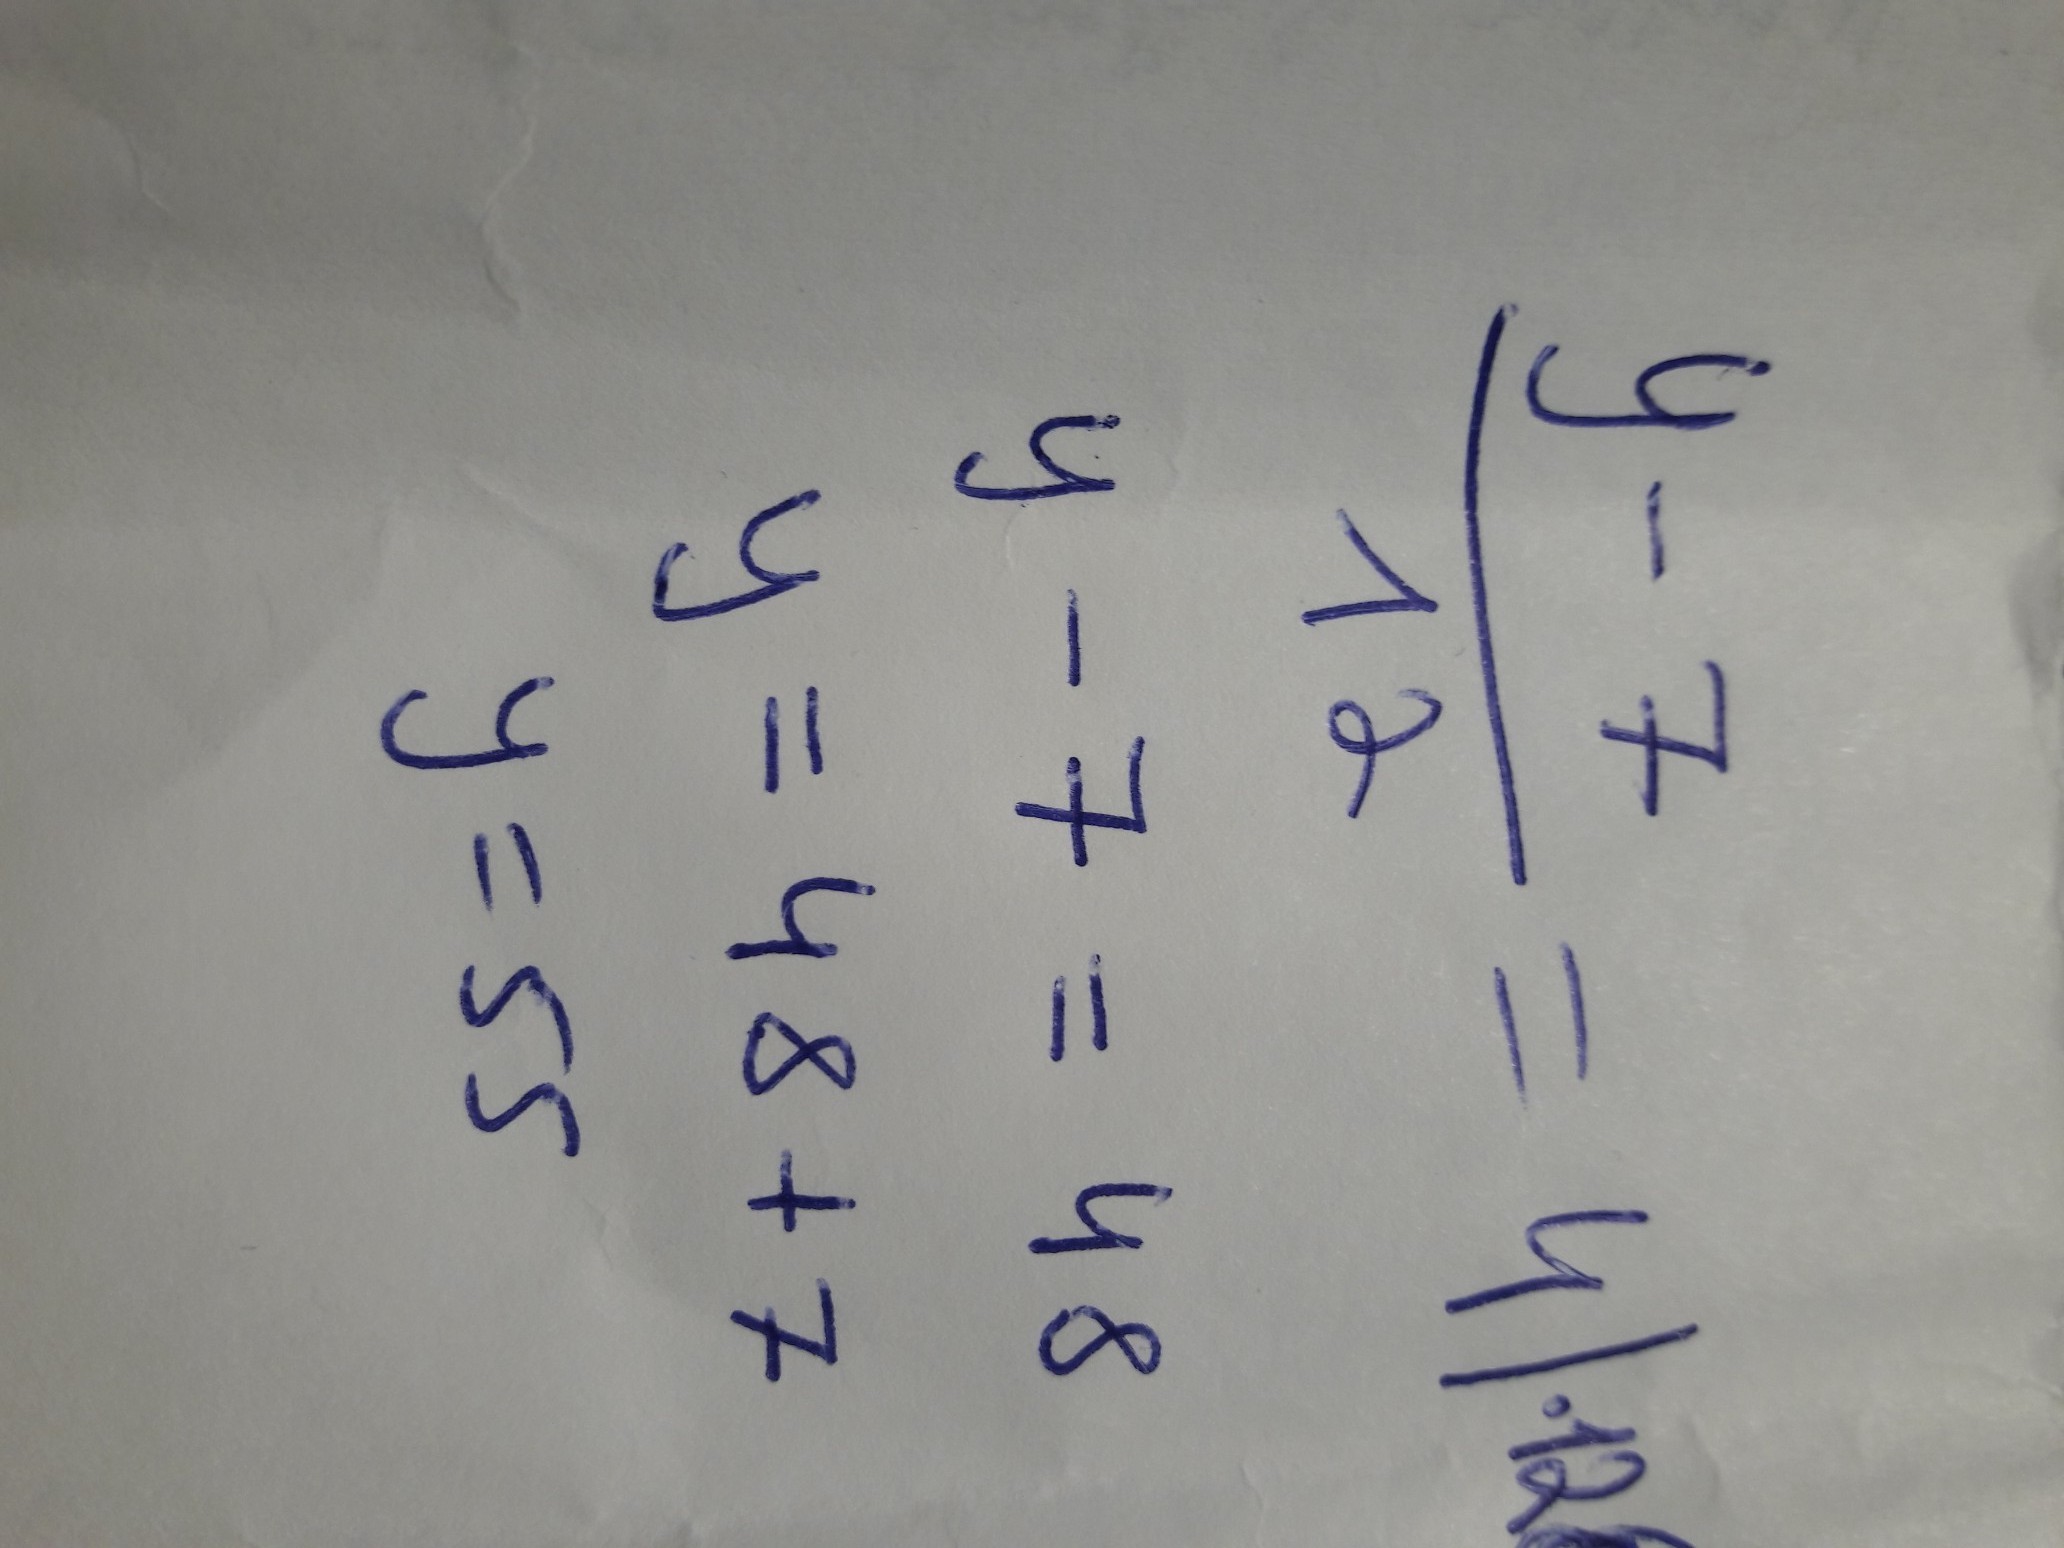 y - 7
12 = 4 | . 12
y - 7 = 48
y = 48 + 7
y = 55